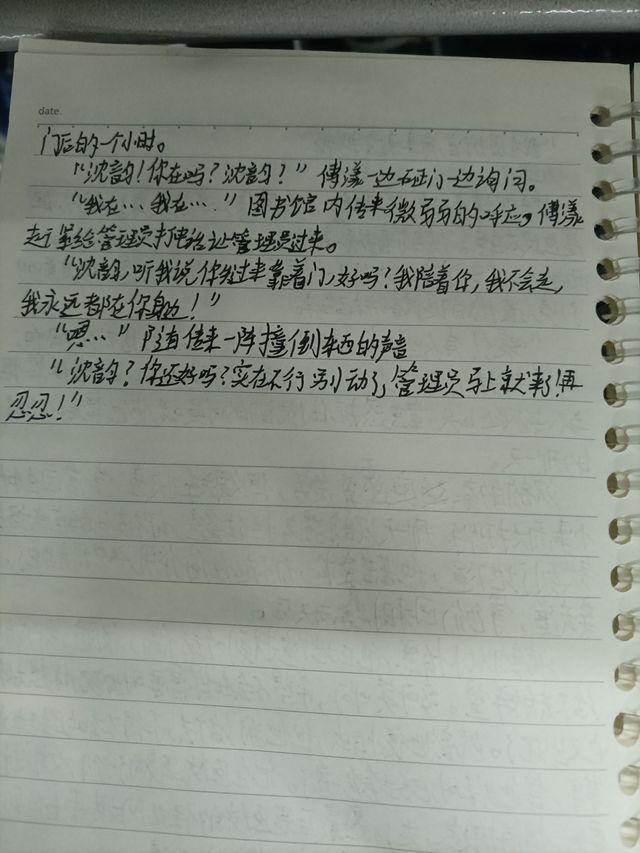 date.
门后的一个小时。
“沈韵！你在吗？沈韵？”傅漾一边砸门一边询问。
“我在…我在…”图书馆内传来微弱的呼应，傅漾
赶紧给管理员打电话让管理员过来。
“沈韵，听我说你先过来靠着门，好吗？我陪着你，我不会走，
我永远都在你身边！”
“嗯…”随着传来一阵撞倒东西的声音
“沈韵？你还好吗？实在不行别动了，管理员马上就来了！再
忍忍！”